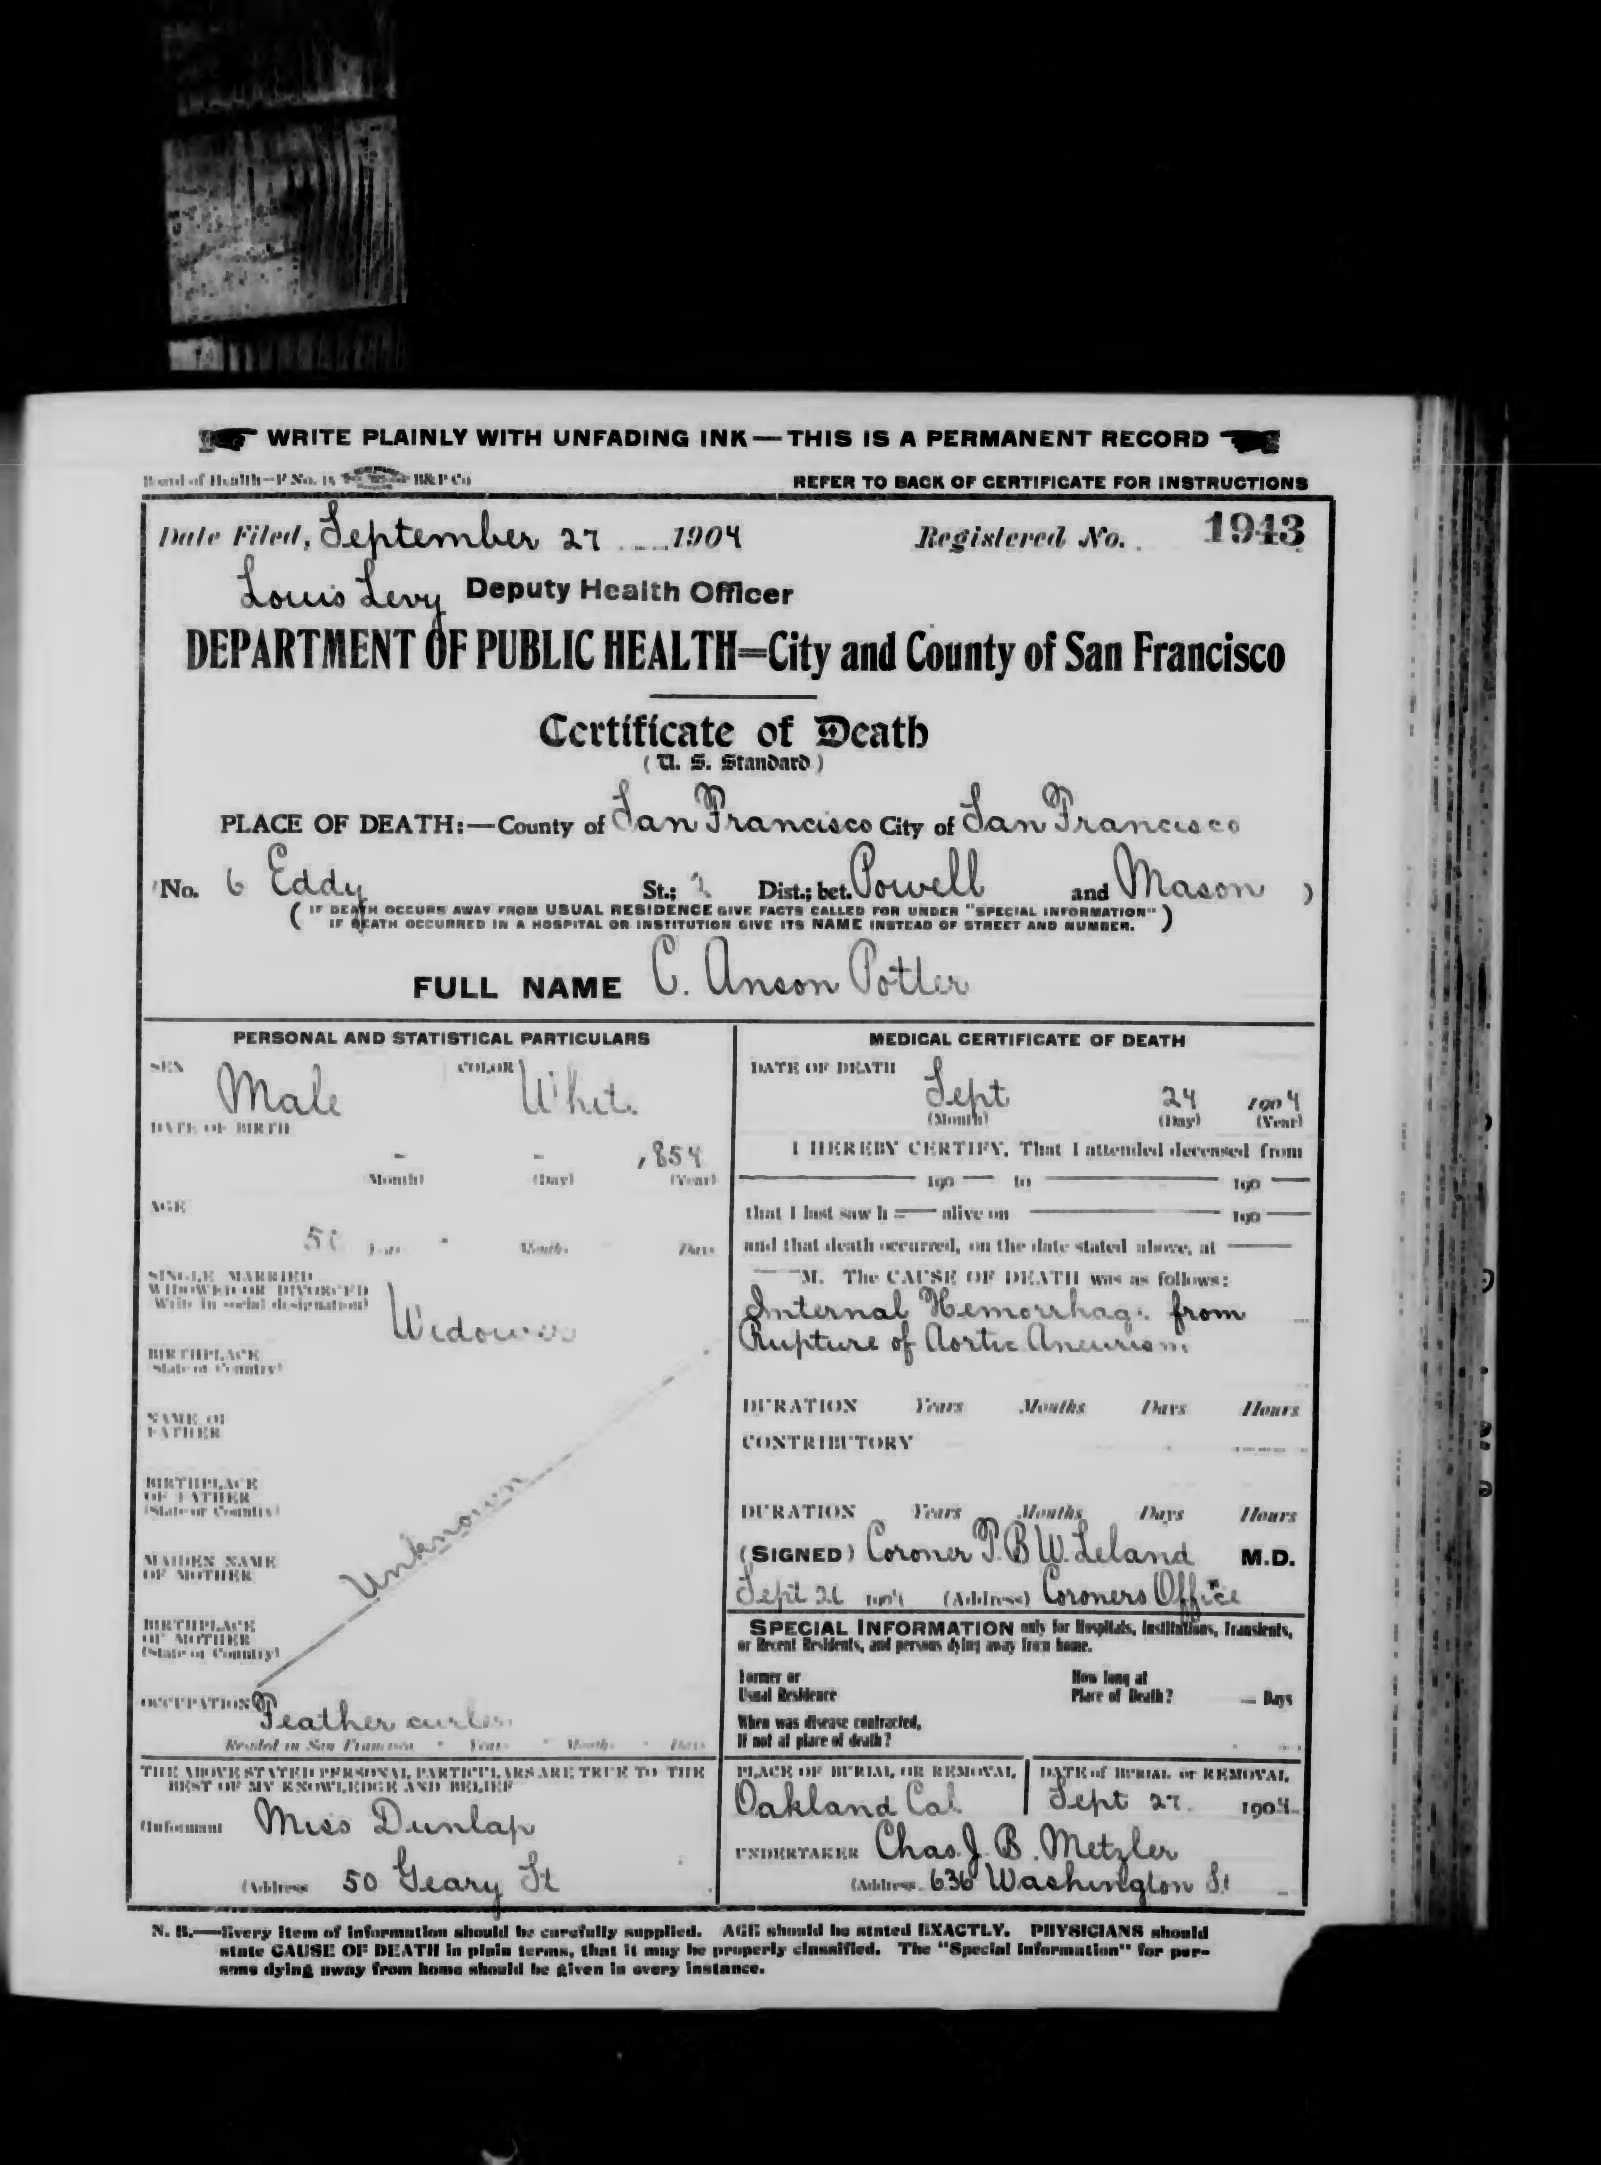 WRITE PLAINLY WITH UNFADING INK — THIS IS A PERMANENT RECORD
Board of Health—P. No. 18 B&P Co
REFER TO BACK OF CERTIFICATE FOR INSTRUCTIONS
Date Filed, September 27 1904 Registered No. 1943
Louis Levy Deputy Health Officer
DEPARTMENT OF PUBLIC HEALTH=City and County of San Francisco
Certificate of Death
(U. S. Standard)
PLACE OF DEATH:—County of San Francisco City of San Francisco
No. 6 Eddy St.; 2 Dist.; bet. Powell and Mason )
( IF DEATH OCCURS AWAY FROM USUAL RESIDENCE GIVE FACTS CALLED FOR UNDER "SPECIAL INFORMATION" )
IF DEATH OCCURRED IN A HOSPITAL OR INSTITUTION GIVE ITS NAME INSTEAD OF STREET AND NUMBER.
FULL NAME C. Anson Potter
PERSONAL AND STATISTICAL PARTICULARS
SEX Male COLOR White
DATE OF BIRTH
- - 1854
(Month) (Day) (Year)
AGE
50 Years Months Days
SINGLE MARRIED
WIDOWED OR DIVORCED
(Write in social designation)
Widower
BIRTHPLACE
(State or Country)
NAME OF
FATHER
BIRTHPLACE
OF FATHER
(State or Country)
Unknown
MAIDEN NAME
OF MOTHER
BIRTHPLACE
OF MOTHER
(State or Country)
OCCUPATION
Feather curler
Resided in San Francisco Years Months Days
THE ABOVE STATED PERSONAL PARTICULARS ARE TRUE TO THE
BEST OF MY KNOWLEDGE AND BELIEF
(Informant Miss Dunlap
(Address 50 Geary St
MEDICAL CERTIFICATE OF DEATH
DATE OF DEATH
Sept 24 1904
(Month) (Day) (Year)
I HEREBY CERTIFY, That I attended deceased from
190 to 190
that I last saw h alive on 190
and that death occurred, on the date stated above, at
M. The CAUSE OF DEATH was as follows:
Internal Hemorrhage from
Rupture of Aortic Aneurism
DURATION Years Months Days Hours
CONTRIBUTORY
DURATION Years Months Days Hours
(SIGNED) Coroner T. B W. Leland M.D.
Sept 26 1904 (Address) Coroners Office
SPECIAL INFORMATION only for Hospitals, Institutions, Transients,
or Recent Residents, and persons dying away from home.
Former or
Usual Residence
How long at
Place of Death? — Days
When was disease contracted,
If not at place of death?
PLACE OF BURIAL OR REMOVAL
Oakland Cal
DATE of BURIAL or REMOVAL
Sept 27 1904
UNDERTAKER Chas. J. B. Metzler
(Address 636 Washington St
N. B.—Every item of information should be carefully supplied. AGE should be stated EXACTLY. PHYSICIANS should
state CAUSE OF DEATH in plain terms, that it may be properly classified. The "Special Information" for per-
sons dying away from home should be given in every instance.